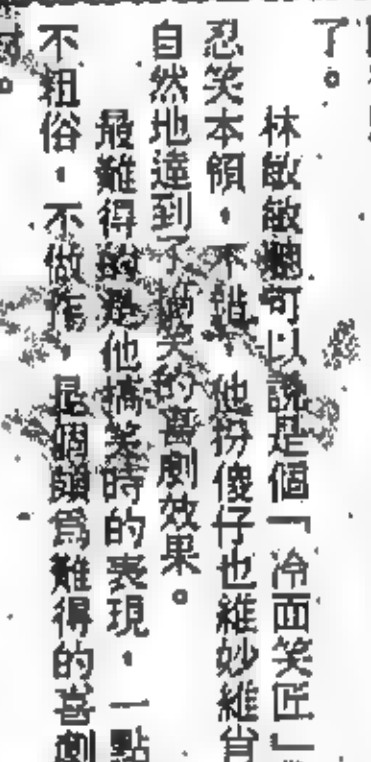 了。
林敏敏可以說是個「冷面笑匠」
忍笑本領,不錯,他扮傻仔也維妙維肖
自然地達到了搞笑的喜劇效果。
最難得的是他搞笑時的表現,一點
不粗俗,不做作,是個頗為難得的喜劇